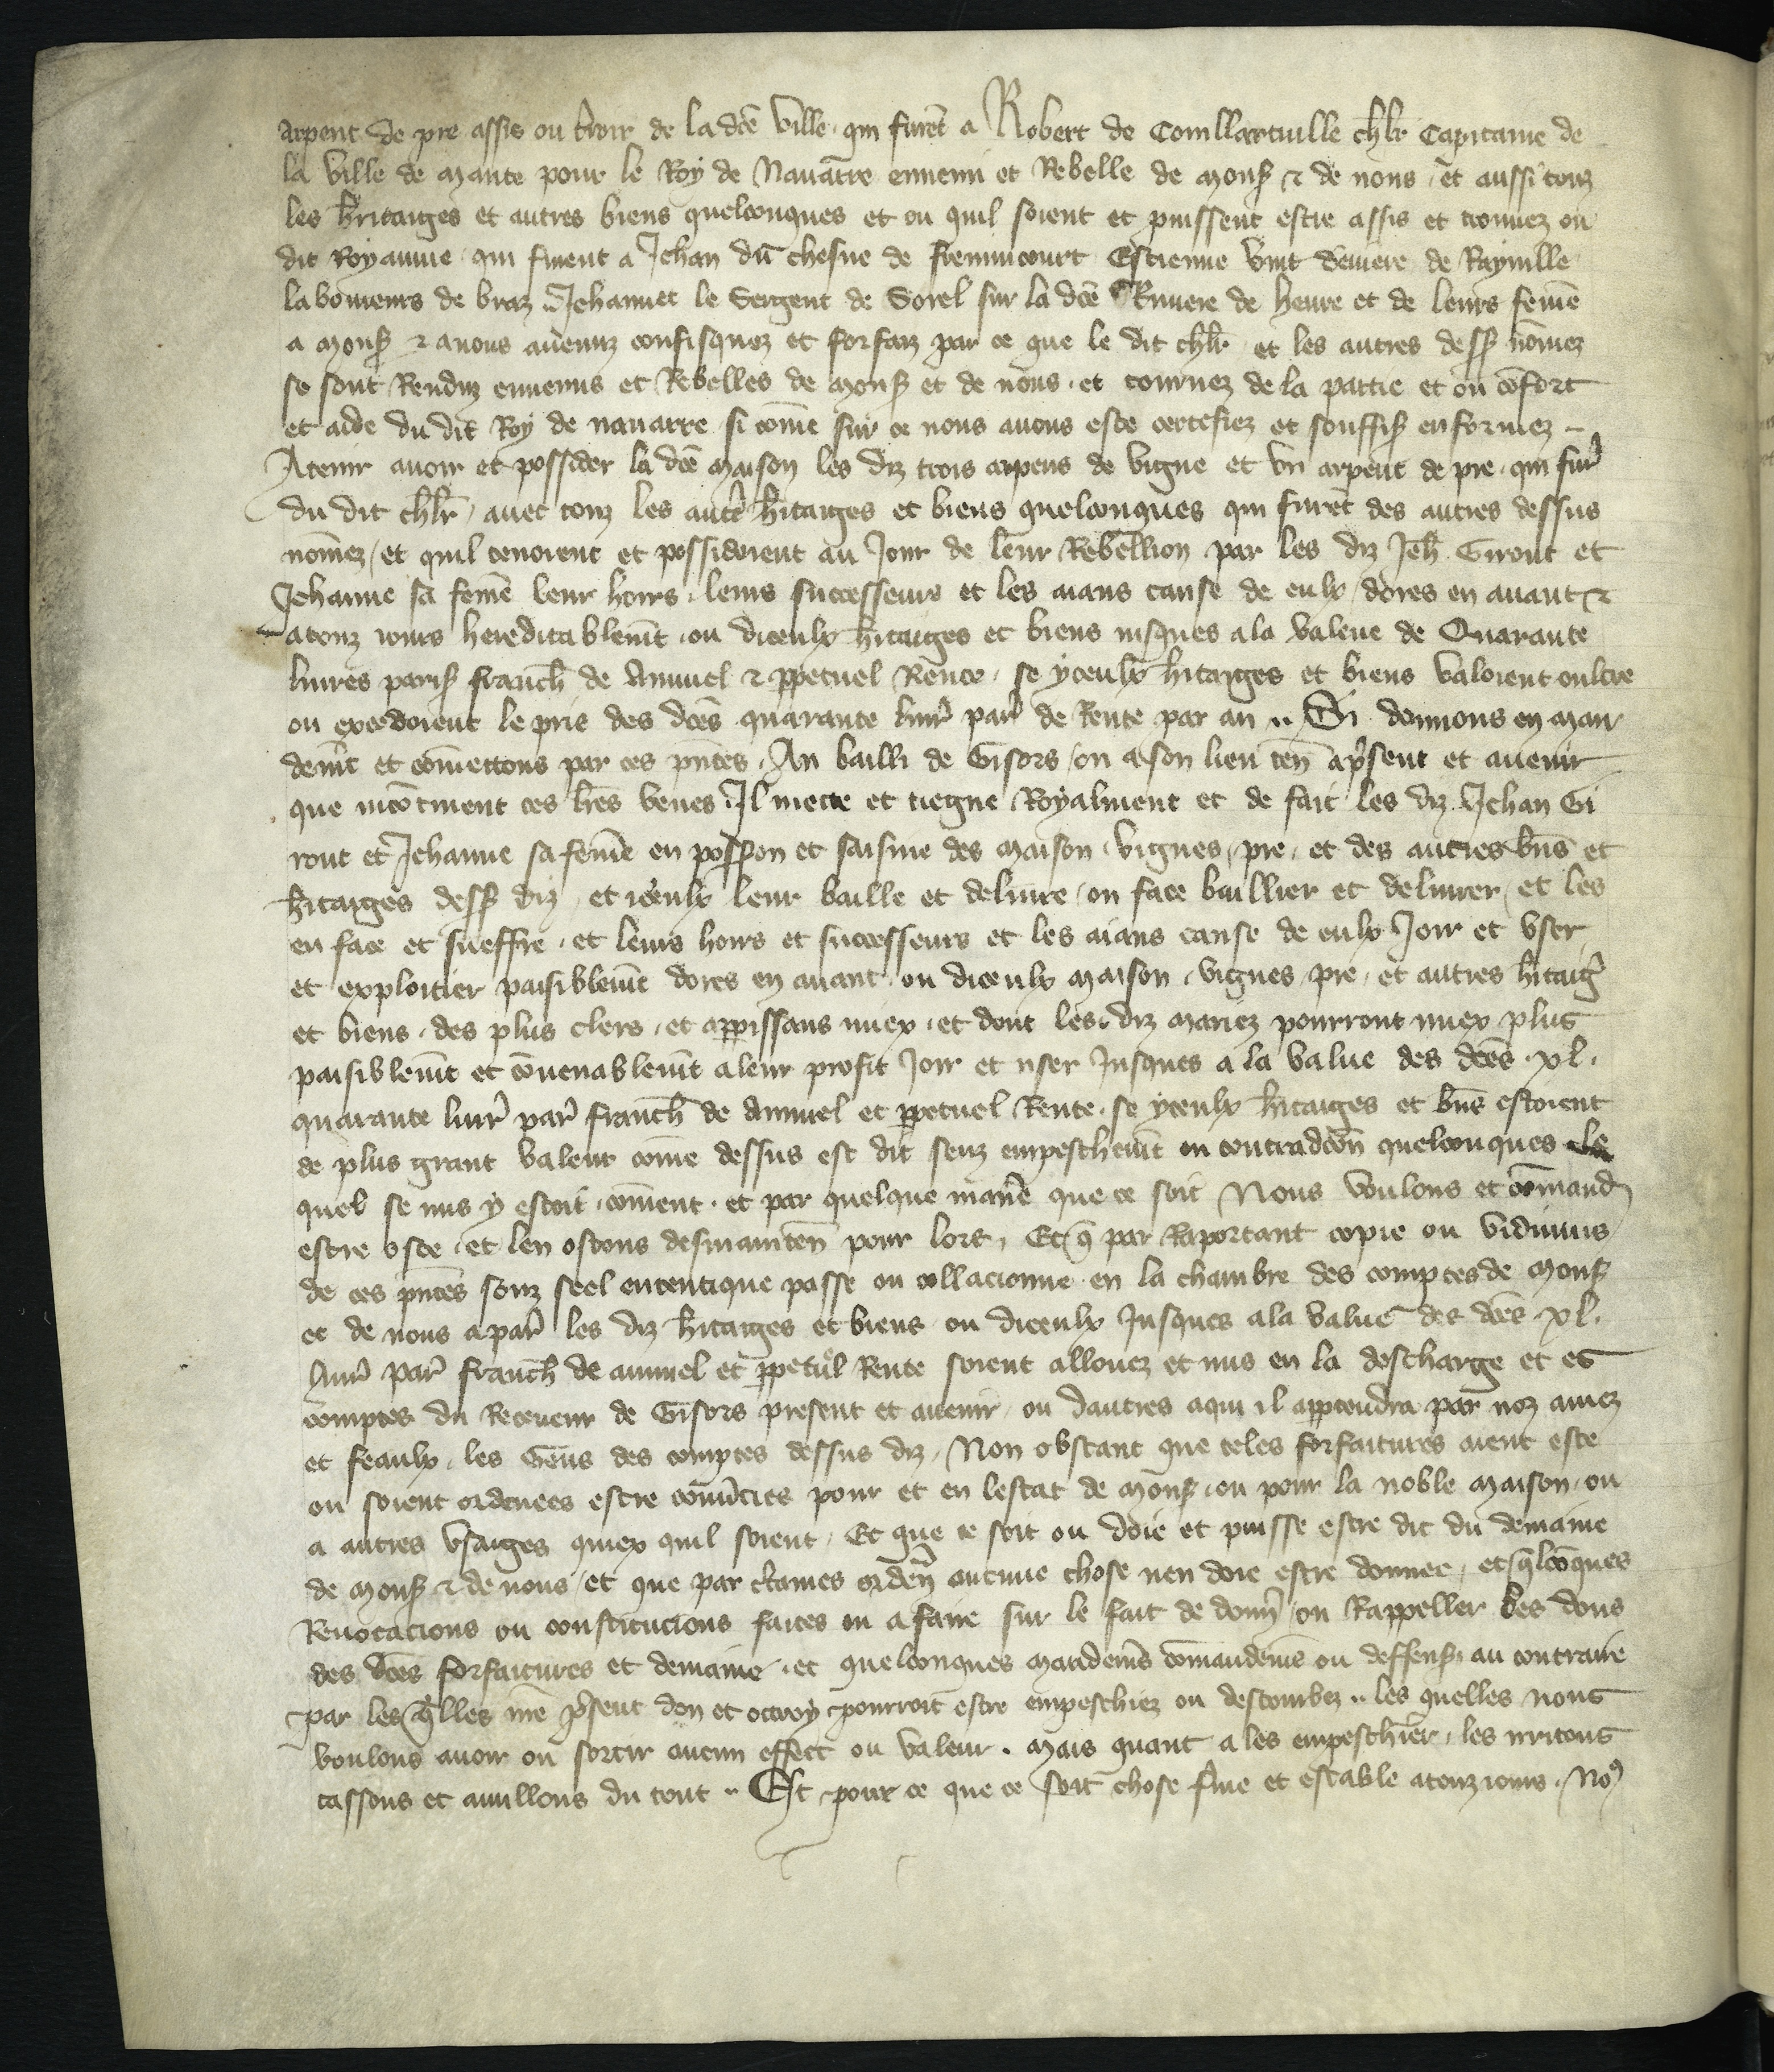 arpent de pre assis ou t'roir de la dcē ville qui furēt a Robert de Couillartuille chlr̄ Capitaine de
la ville de Mante pour le Roy de Nauarre ennemi et Rebelle de monsʳ ⁊ de nous et aussi touz
les h'ritaiges et autres biens quelconques et ou quil soient et puissent estre assis et trouuez ou
dit Royaume qui furent a Jehan du chesne de Estienne de
laboureurs de braz Jehannet le Sergent de Sorel sur la dcē Riuiere de heure et de leurs femē
a monsʳ ⁊ a nous auenuz confisquez et forfaiz par ce que le dit chlr̄ et les autres dessʳ nōmez
se sont Renduz ennemis et Rebelles de monsʳ et de nous et tournez de la partie et ou cōfort
et aide du dit Roy de nauarre si cōme sur ce nous auons este certefiez et souffisʳ enformez
A tenir auoir et possider la dcē maison les diz trois arpens de vigne et vn arpent de pre qui fur'
du dit chlr̄ auec touz les autr' h'itaiges et biens quelconques qui furēt des autres dessus
nōmez et quil tenoient et possidoient au Jour de leur Rebellion par les diz Jeh̄ Girout et
Jehanne sa femē leur hoirs leurs successeurs et les aians cause de eulx dores en auant ⁊
a touz iours hereditablemt̄ ou diceulx h'itaiges et biens iusques a la value de Quarante
liures parisʳ franch̄ de Annuel ⁊ ꝑpetuel Rente se yceulx h'itaiges et biens valoient oultre
ou excedoient le pris des dcēs quarante liur' par' de Rente par an Si donnons en man
demt̄ et cōmettons par ces pn̄tes Au bailli de Gisors ou a son lieu ten̄ a p'sent et auenir
que incōtinent ces lr̄es veues Il mette et tiegne Royalment et de fait les diz Jehan Gi
rout et Jehanne sa femē en possʳon et saisine des maison vignes pre et des autres bn̄s et
h'itaiges dessʳ diz et iceulx leur baille et deliure ou face baillier et deliurer et les
en face et sueffre et leurs hoirs et successeurs et les aians cause de eulx Joir et vser
et exploitier paisiblemt̄ dores en auant ou diceulx maison vignes pre et autres h'itaig'
et biens des plus clers et apparissans miex et dont les diz mariez pourront miex plus
paisiblemt̄ et cōuenablemt̄ a leur profit Joir et user Jusques a la value des dcēs xl.
quarante liur' par' franch̄ de Annuel et ꝑpetuel Rente se yceulx h'itaiges et bn̄s estoient
de plus grant valeur cōme dessus est dit senz empeschemt̄ ou contradcōn quelconques le
quel se mis y estoit cōment et par quelque manie' que ce soit Nous voulons et cōmand'
estre oste et len ostons desmainten̄ pour lors Et q̄ par Raportant copie ou vidimus
de ces pn̄tes souz seel autentique passe ou collacionne en la chambre des comptes de monsʳ
et de nous a par' les diz h'itaiges et biens ou diceulx Jusques a la value des dcēs xl.
liur' par' franch̄ de annuel et ꝑpetuel Rente soient allouez et mis en la descharge et es
comptes du Receueur de Gisors present et auenir ou dautres a qui il appartendra par noz amez
et feaulx les Gens des comptes dessus diz Non obstant que teles forfaitures aient este
ou soient ordenees estre cōu'ties pour et en lestat de monsʳ ou pour la noble maison ou
a autres vsaiges quiex quil soient Et que ce soit ou doie et puisse estre dit du demaine
de monsʳ ⁊ de nous et que par c'taines orden̄ aucune chose nen doie estre donnee et q̄lcōques
Reuocacions ou constitucions faites ou a faire sur le fait de donn' ou Rappeller les dons
des dcēs forfaitures et demaine et quelconques mandems̄ cōmandems̄ ou deffensʳ au contraire
par les q̄lles nrē p'sent don et octroy pourroit estre empeschiez ou destourbez les quelles nous
voulons auoir ou sortir aucun effect ou valeur. Mais quant a les empeschier les irritons
cassons et anullons du tout Et pour ce que ce soit chose f'me et estable a touz iours. No⁹